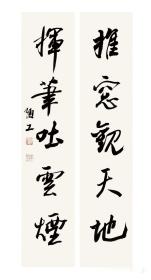 推窗観天地
揮筆吐雲煙